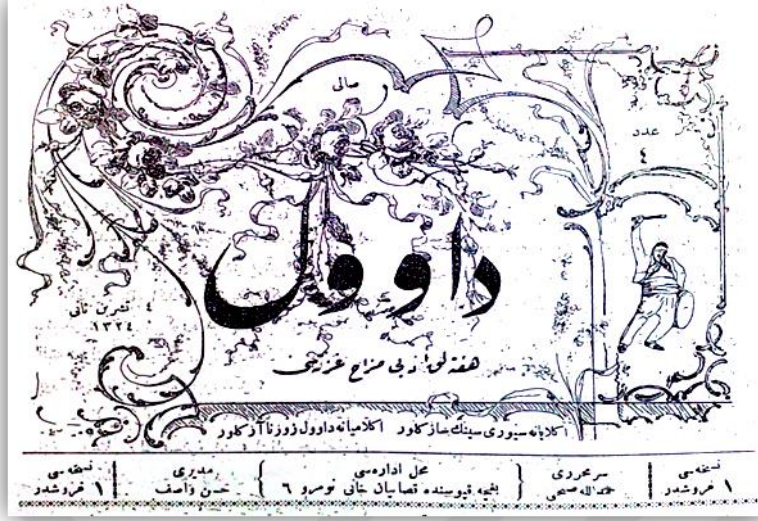 صالی
عدد
٤
داوول
٤ تشرين ثانی
١٣٢٤
هفته لق ادبی مزاح غزته سی
اكلايانه سيوری سينك ساز كلور اكلاميانه داوول زورنا آز كلور
نسخه سی
١ غروشدر
سر محرری
محل اداره سی
باغچه قپوسنده قصابيان خانی نومرو ٦
مديری
حسن واصف
نسخه سی
١ غروشدر